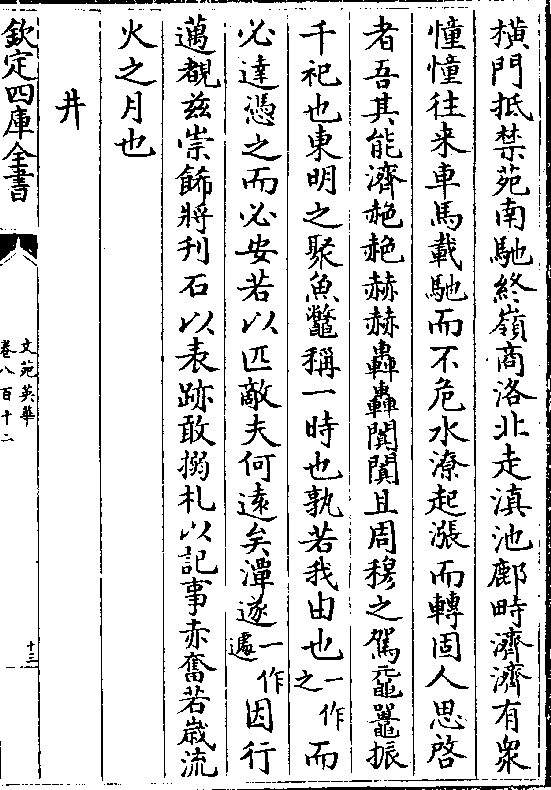 橫門抵禁苑南馳終嶺商洛北走滇池鄜畤濟濟有衆
憧憧往来車馬載馳而不危水潦起漲而轉固人思啓
者吾其能濟赩赩赫赫轟轟闐闐且周穆之駕黿鼉振
千祀也東明之聚魚鼈稱一時也孰若我由也一作之而
必達憑之而必安若以匹敵夫何遠矣潭遂一作遽因行
邁覩兹崇飾將刋石以表跡敢搦札以記事赤奮若歳流
火之月也
井
欽定四庫全書
文苑英華
卷八百十二
十三